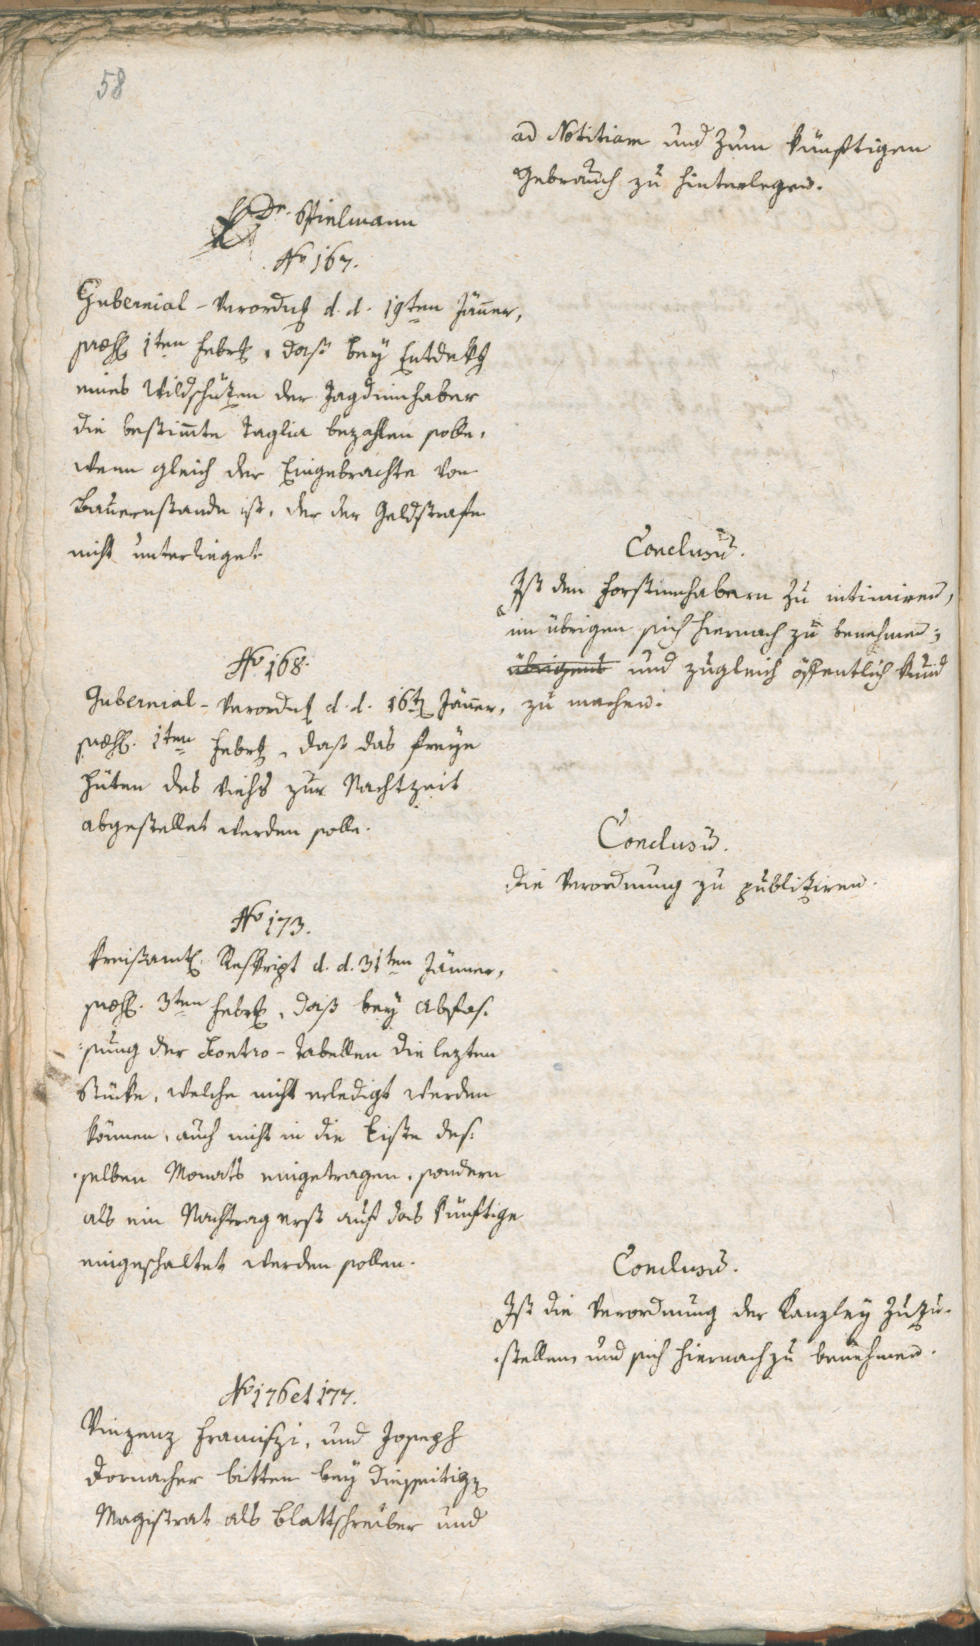 58
ad Notitiam und zum künftigen
Gebrauch zu hinterlegen.
Dr. Spielmann
No 167.
Gubernial-Verordng d. d. 19ten Jäner,
1ten Febr, daß bey Entdekg
eines Wildschützen der Jagdinnhaber
die bestimte Taglia bezahlen solle,
wenn gleich der Eingebrachte von
Bauernstande ist, der der Geldstrafe
nicht unterlieget.
Conclusũ.
Ist den Forstinnhabern zu intimiren,
im übrigen sich hiernach zu benehmen;
übrigens und zugleich öffentlich kund
zu machen.
No 168.
Gubernial-Verordng d. d. 16t Jäner,
1ten Febr, daß das freye
Hüten des Viehs zur Nachtzeit
abgestellet werden solle.
Conclusũ.
Die Verordnung zu publiziren.
No 173.
Kreisamtl. Reskript d. d. 31ten Jänner,
3ten Febr, daß bey Abfas-
sung der Kontro-Tabellen die lezten
Stücke, welche nicht erledigt werden
können, auch nicht in die Liste des-
selben Monats eingetragen, sondern
als ein Nachtrag erst auf das künftige
eingeschaltet werden sollen.
Conclusũ.
Ist die Verordnung der Kanzley zuzu-
stellen und sich hiernach zu benehmen.
No 176 et 177.
Vinzenz Franciszi, und Joseph
Dornacher bitten bey diesseitig
Magistrat als Blattschreiber und